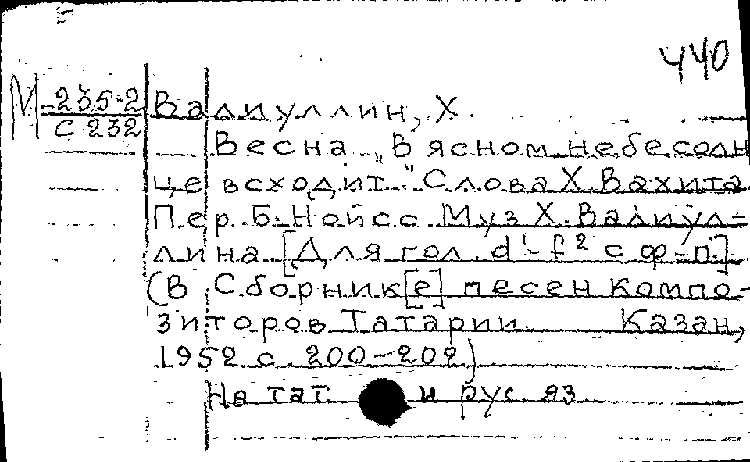 440
М 235-2 Валиуллин, Х.
С 232
Весна „В ясном небе солн
це всходит." Слова Х. Вахита
Пер. Б. Нойсс Муз Х. Валиул-
лина [Для гол. d¹-f² с ф-п.]
(В Сборник[е] песен компо-
зиторов Татарии Казан,
1952 с. 200-202)
На тат. и рус яз